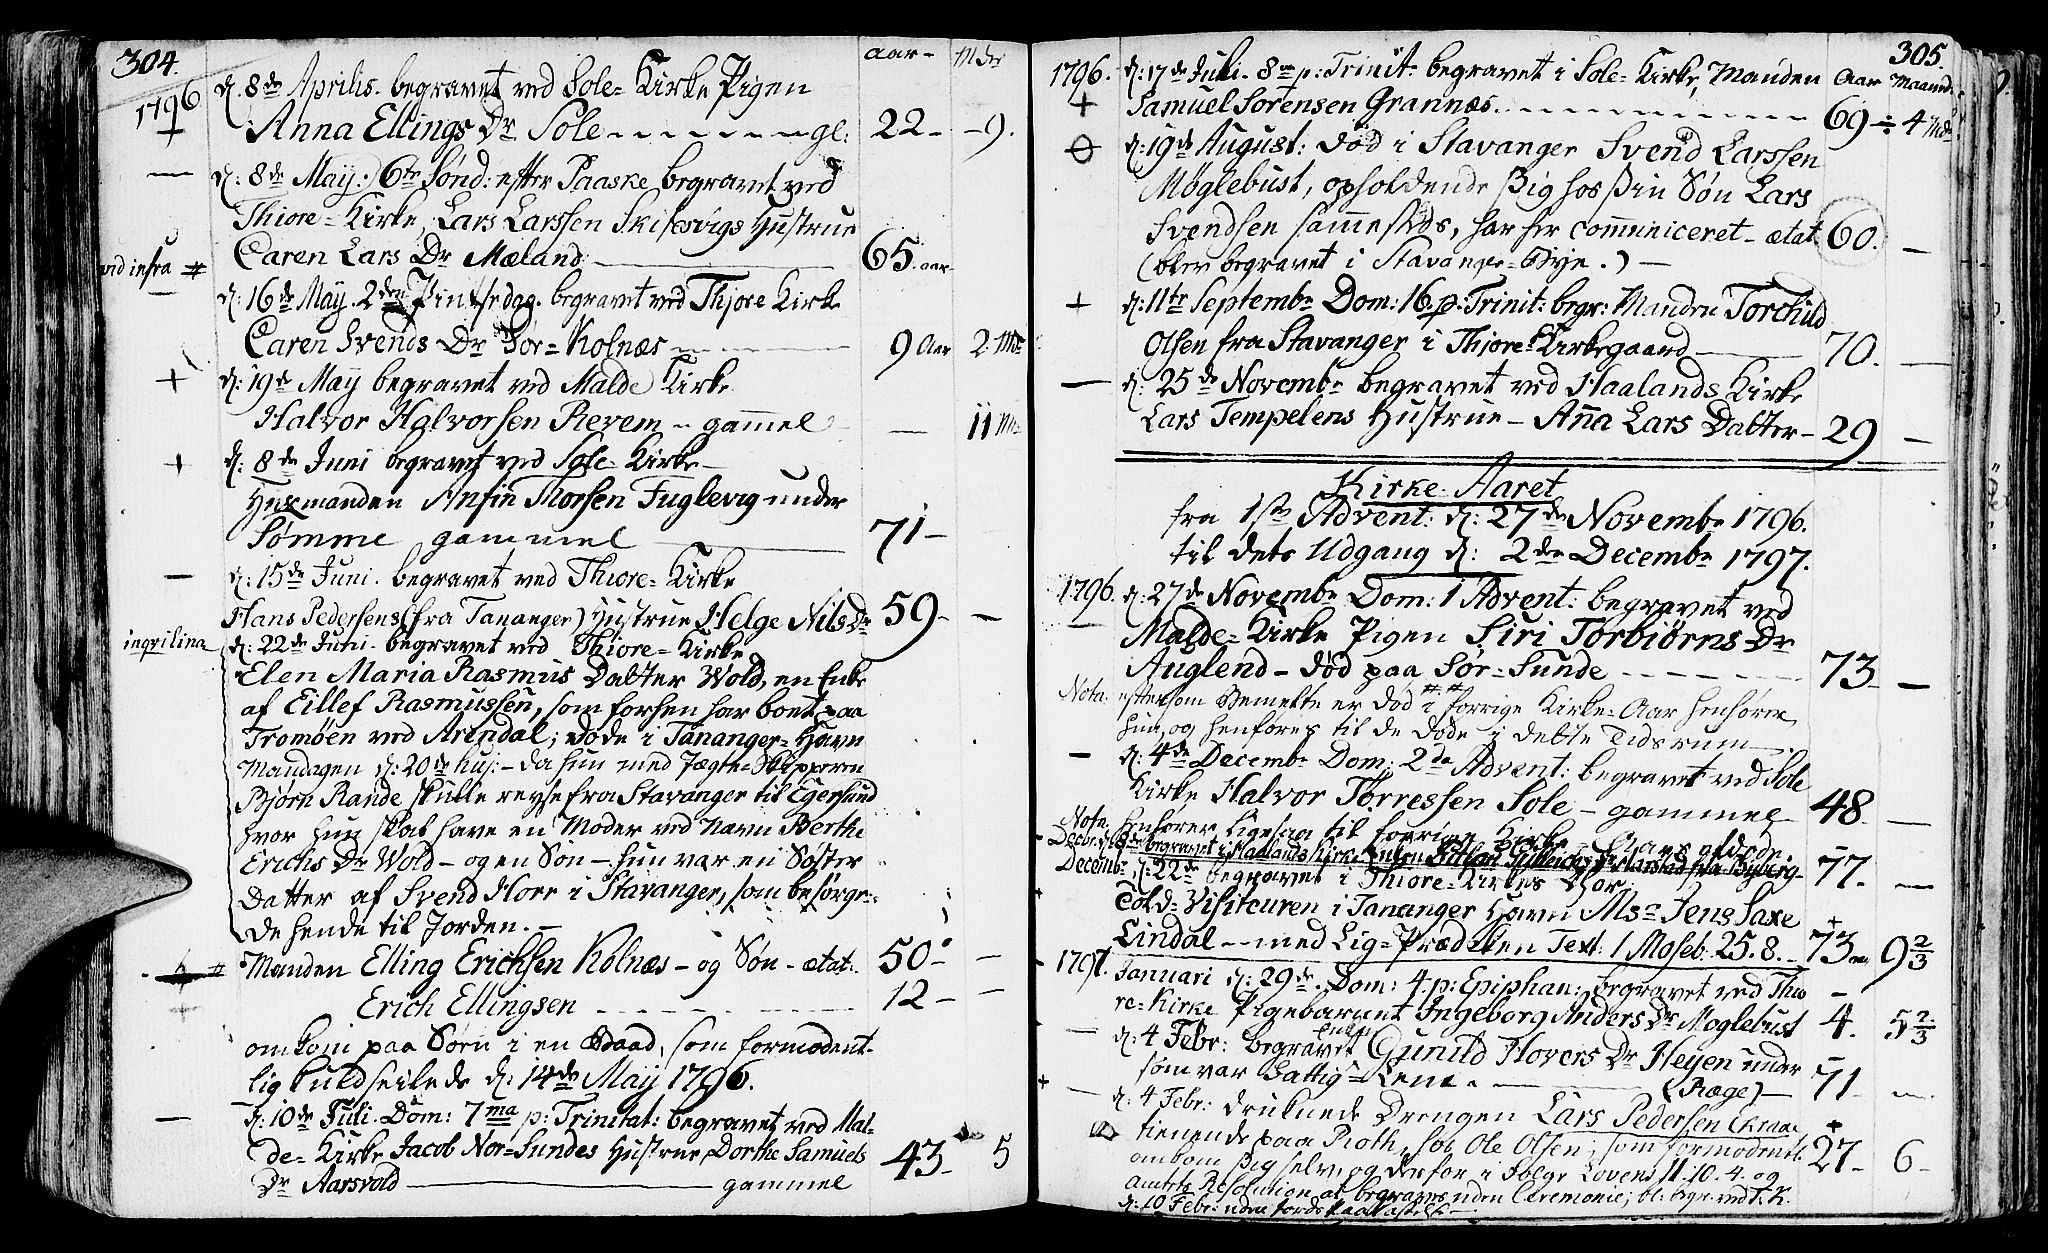 304.
aar - Mdr
1796 d. 8de Aprilis. begravet ved Sole= Kirke Pigen
Anna Ellings Dr Sole - - - - - - gl: 22 - - 9.
d: 8de May: 6te Sønd: efter Paaske begravet ved
Thiore= Kirke Lars Larssen Skiesvigs Hustrue
Caren Lars Dr Mæland. 65. aar
vid infra #
d: 16de May. 2den Pintsedag. begravet ved Thjore Kirke
Caren Svends Dr Sør= Kolnæs 9 Aar 2. Mdr
+ d: 19de May begravet ved Malde Kirke
Halvor Halvorsen Revem - gammel - 11 Mdr
+ d: 8de Juni begravet ved Sole= Kirke -
Huusmanden Anfin Morsen Fuglevig under
Sømme gammel 71 -
- d: 15de Juni. begravet ved Thiore= Kirke
Hans Pedersens (fra Tananger) Hustrue Helge Nils Dr 59 - -
inqvilina d: 22de Juni. begravet ved Thiore= Kirke
Elen Maria Rasmus Datter Wold, en Enke
af Eillef Rasmussen, som forhen har boet paa
Tromøen ved Arendal; døde i Tananger= Havn
Mandagen d: 20de huj: - da hun med Jægte= Skipperen
Bjørn Rande skulle reyse fra Stavanger til Egersund
hvor hun skal have en Moder ved Navn Berthe
Erichs Dr Wold - og en Søn - hun var en Søster
Datter af Svend Horr i Stavanger, som besørge-
de hende til Jorden. -
# Manden Elling Erichsen Kolnæs - og Søn - ætat: 50 - -
Erich Ellingsen - - - - - - 12 - -
omkom paa Søen i en Baad, som formodent-
lig kuldseilede d: 14de May 1796.
- d: 10de Juli. Dom: 7ma p: Trinitat: begravet ved Mal-
de= Kirke Jacob Nor= Sundes Hustrue Dorthe Samuels 43 - 5
Dr Aarsvold gammel
305.
1796. d: 17de Juli. 8va p: Trinit: begravet i Sole= Kirke, Manden Aar Maaned:
+ Samuel Sørensen Grannæs. - - - - - 69 - 4 Mdr
d: 19de August: død i Stavanger Svend Larssen
Møglebust, opholdende sig hos sin Søn Lars
Svendsen sammesteds, har her communiceret - ætat 60. -
(blev begravet i Stavanger= Bye.) -
+ d: 11te Septembr Dom: 16. p: Trinit: begr: Manden Torchild
Olsen fra Stavanger i Thjore= Kirkegaard 70. -
- d: 25de Novembr begravet ved Haalands Kirke
Lars Tempelens Hustrue - Anna Lars Datter - 29 -
Kirke= Aaret
fra 1ste Advent: d: 27de Novembr 1796.
til dets Udgang d: 2den Decembr 1797.
1796. d: 27de Novembr Dom: 1 Advent: begravet ved
Malde= Kirke Pigen Siri Torbiørns Dr
Auglend - død paa Sør= Sunde - - - - - 73 - -
Nota. eftersom Bemelte er død i forrige Kirke= Aar henhører
hun, og henføres til de døde i dette Tidsrum
- d: 4de Decembr Dom: 2da Advent: begravet ved Sole
Kirke Halvor Torressen Sole - gammel 48 -
Nota. henhører ligesaa til forrige Kirke= Aars
Decbr. d: begravet i Haalands Kirke Enken fra Byberg - 77. -
Decembr d: 22de begravet i Thiore= Kirkes Chor
Told= Visiteuren i Tananger Havn Msr Jens Saxe
Lindal - - med Lig= Prædiken Text: 1 Moseb: 25. 8. - 73 9 2/3
1797. Januari d: 29de. Dom: 4. p: Epiphan: begravet ved Thio
re= Kirke Pigebarnet Ingeborg Anders Dr Moglebust 4. 5 2/3
- d: 4 Febr: begravet Enken Gunild Hovers Dr Heyen under
som var Fattig= Lem. (Ræge) - 71 -
d: 4 Febr: druknede Drengen Lars Pedersen Kraae
tienende paa Roth, hos Ole Olsen; som formodentl 27 - 6 -
omkom sig selv, og derfor i følge Lovens 11. 10. 4. og
Amtets Resolution at begraves uden Ceremonie; bl: begr: ved T. K.
d: 10 Febr: uden Jords paakastelse -